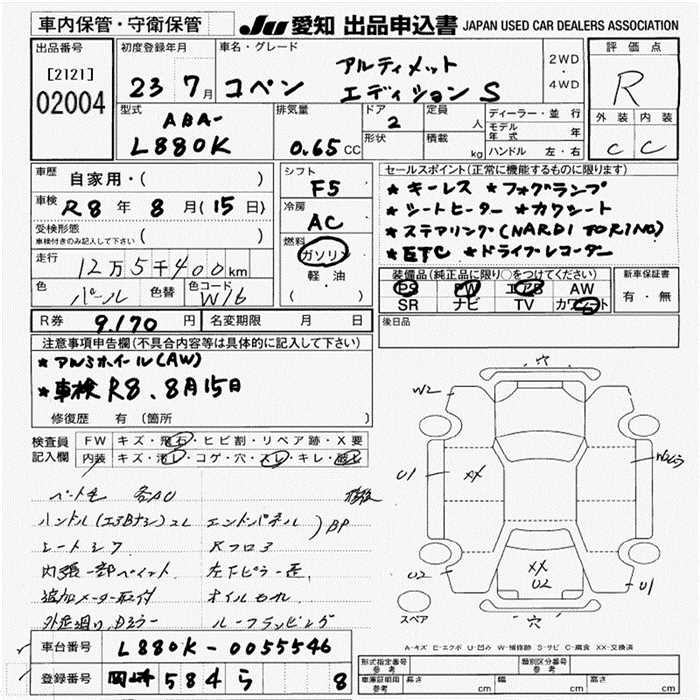 車内保管・守衛保管
JU 愛知 出品申込書 JAPAN USED CAR DEALERS ASSOCIATION
出品番号
[2121]
02004
初度登録年月
23 7月
車名・グレード
コペン アルティメット
エディション S
2WD
・
4WD
評価点
R
外装 内装
C C
型式
ABA-
L880K
排気量
0.65 CC
ドア
2
形状
定員
人
積載
kg
ディーラー・並行
モデル年式 年
ハンドル 左・右
車歴 自家用・( )
車検 R8 年 8 月(15 日)
受検形態
車検付きのみ記入して下さい ( )
走行 12万5千400km
色 パール 色替 色コード W16
シフト
F5
冷房
AC
燃料
ガソリン
軽・油
( )
セールスポイント(正常に機能するものに限ります)
★ キーレス ★ フォグランプ
★ シートヒーター ★ カワシート
★ ステアリング(NARDI TORINO)
★ ETC ★ ドライブレコーダー
装備品(純正品に限り○をつけてください)
PS PW エアB AW
SR ナビ TV カワシート
新車保証書
有・無
R券 9,170 円 名変期限 月 日
後日品
注意事項申告欄(不具合内容等は具体的に記入して下さい)
★ アルミホイール(AW)
★ 車検 R8.8月15日
修復歴 有(箇所
検査員
記入欄
FW キズ・飛石・ヒビ割・リペア跡・X要
内装 キズ・汚レ・コゲ・穴・スレ・キレ・破レ
ハンドル(エアBナシ)スレ エンドパネル )BP
シートシワ
内張一部ペイント 左下ピラー歪
追加メーター取付 オイルモレ
ルーフランピング
車台番号 L880K-0055546
登録番号 岡崎 584 ら 8
穴
W2
U1
XX
U2
XX
U2
U1
穴
スペア
A-キズ E-エクボ U-凹み W-補修跡 S-サビ C-腐食 XX-交換済
形式指定番号
参考
類別区分番号
参考
車庫証明用
参考
長さ cm 幅 cm 高さ cm